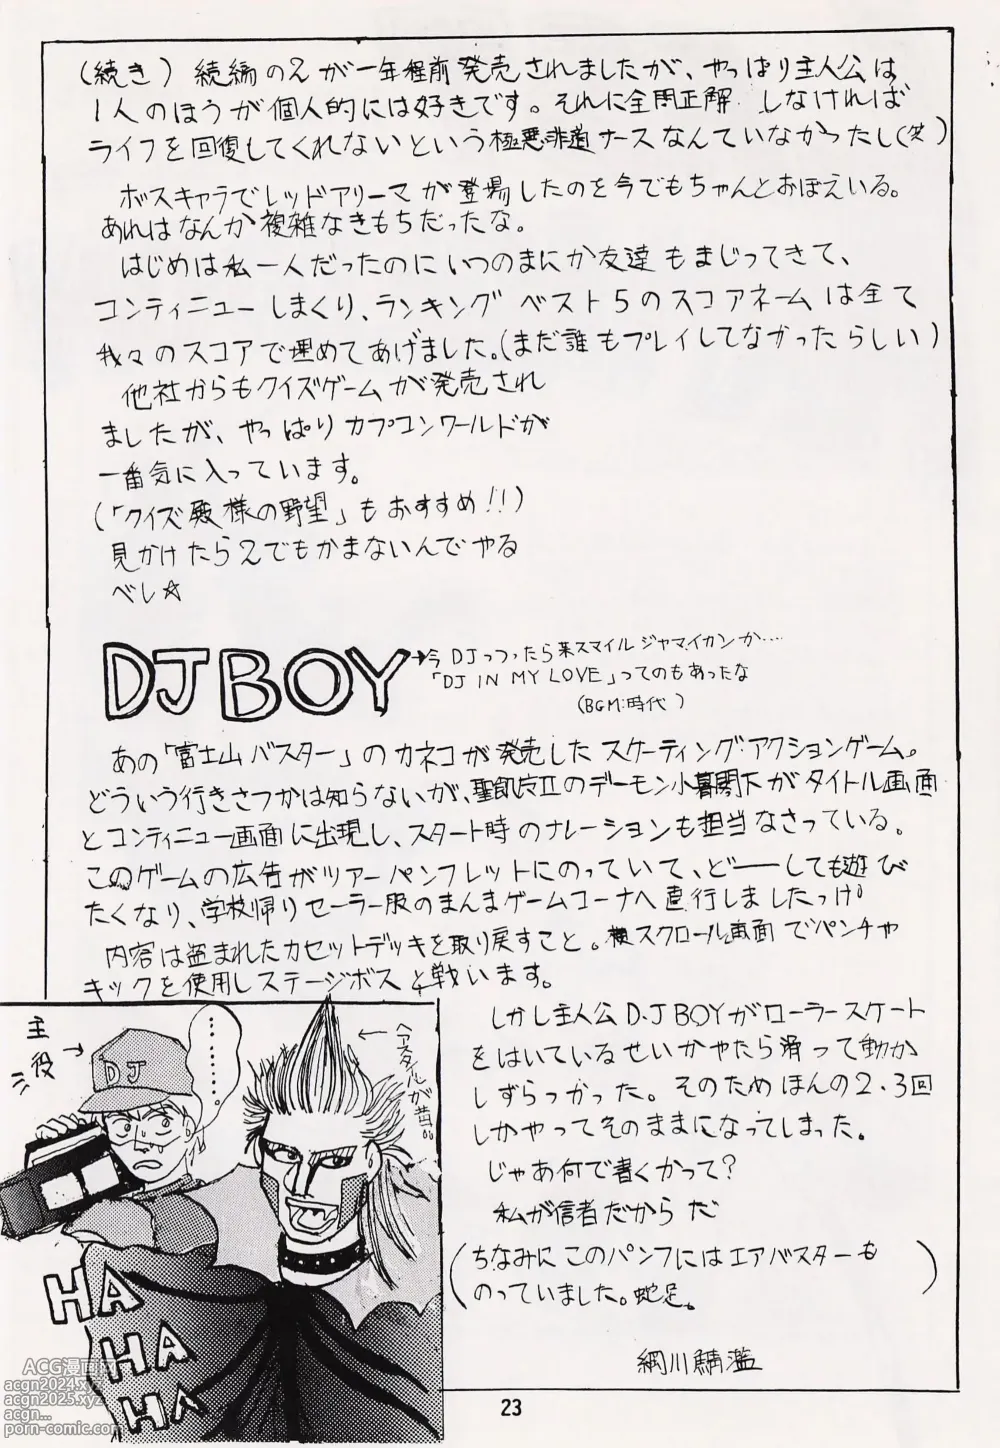 (続き) 続編の2が一年程前発売されましたが、やっぱり主人公は
1人のほうが個人的には好きです。それに全問正解しなければ
ライフを回復してくれないという極悪非道ナースなんていなかったし(笑)
ボスキャラでレッドアリーマが登場したのを今でもちゃんとおぼえいる。
あれはなんか複雑なきもちだったな。
はじめは私一人だったのにいつのまにか友達もまじってきて、
コンティニューしまくり、ランキングベスト5のスコアネームは全て
我々のスコアで埋めてあげました。(まだ誰もプレイしてなかったらしい)
他社からもクイズゲームが発売され
ましたが、やっぱりカプコンワールドが
一番気に入っています。
(「クイズ殿様の野望」もおすすめ!!)
見かけたら2でもかまないんでやる
べし☆
DJ BOY
→今DJっつったら某スマイルジャマイカンか‥‥
「DJ IN MY LOVE」ってのもあったな
(BGM:時代)
あの「富士山バスター」のカネコが発売したスケーティング・アクションゲーム。
どういう行きさつかは知らないが、聖飢魔IIのデーモン小暮閣下がタイトル画面
とコンティニュー画面に出現し、スタート時のナレーションも担当なさっている。
このゲームの広告がツアーパンフレットにのっていて、ど──しても遊び
たくなり、学校帰りセーラー服のまんまゲームコーナへ直行しましたっけ。
内容は盗まれたカセットデッキを取り戻すこと。横スクロール画面でパンチや
キックを使用しステージボスと戦います。
しかし主人公D.J BOYがローラースケート
をはいているせいかやたら滑って動か
しずらっかった。そのためほんの2・3回
しかやってそのままになってしまった。
じゃあ何で書くかって?
私が信者だからだ
(ちなみにこのパンフにはエアバスターも
のっていました。蛇足。)
網川鯖濫
主役→
DJ
‥‥‥‥
←ヘアスタイルが昔。
HA
HA
HA
HA
23
ACG漫画网
acgn2024.xyz
acgn2025.xyz
acgn...
porn-comic.com